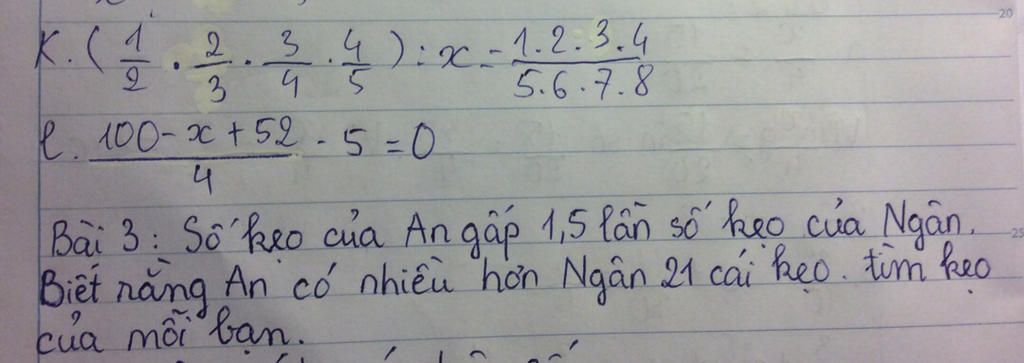 K. ( 1/2 . 2/3 . 3/4 . 4/5 ) : x = 1.2.3.4/5.6.7.8
l. 100 - x + 52/4 - 5 = 0
Bài 3 : Số kẹo của An gấp 1,5 lần số kẹo của Ngân.
Biết rằng An có nhiều hơn Ngân 21 cái kẹo. tìm kẹo
của mỗi bạn.